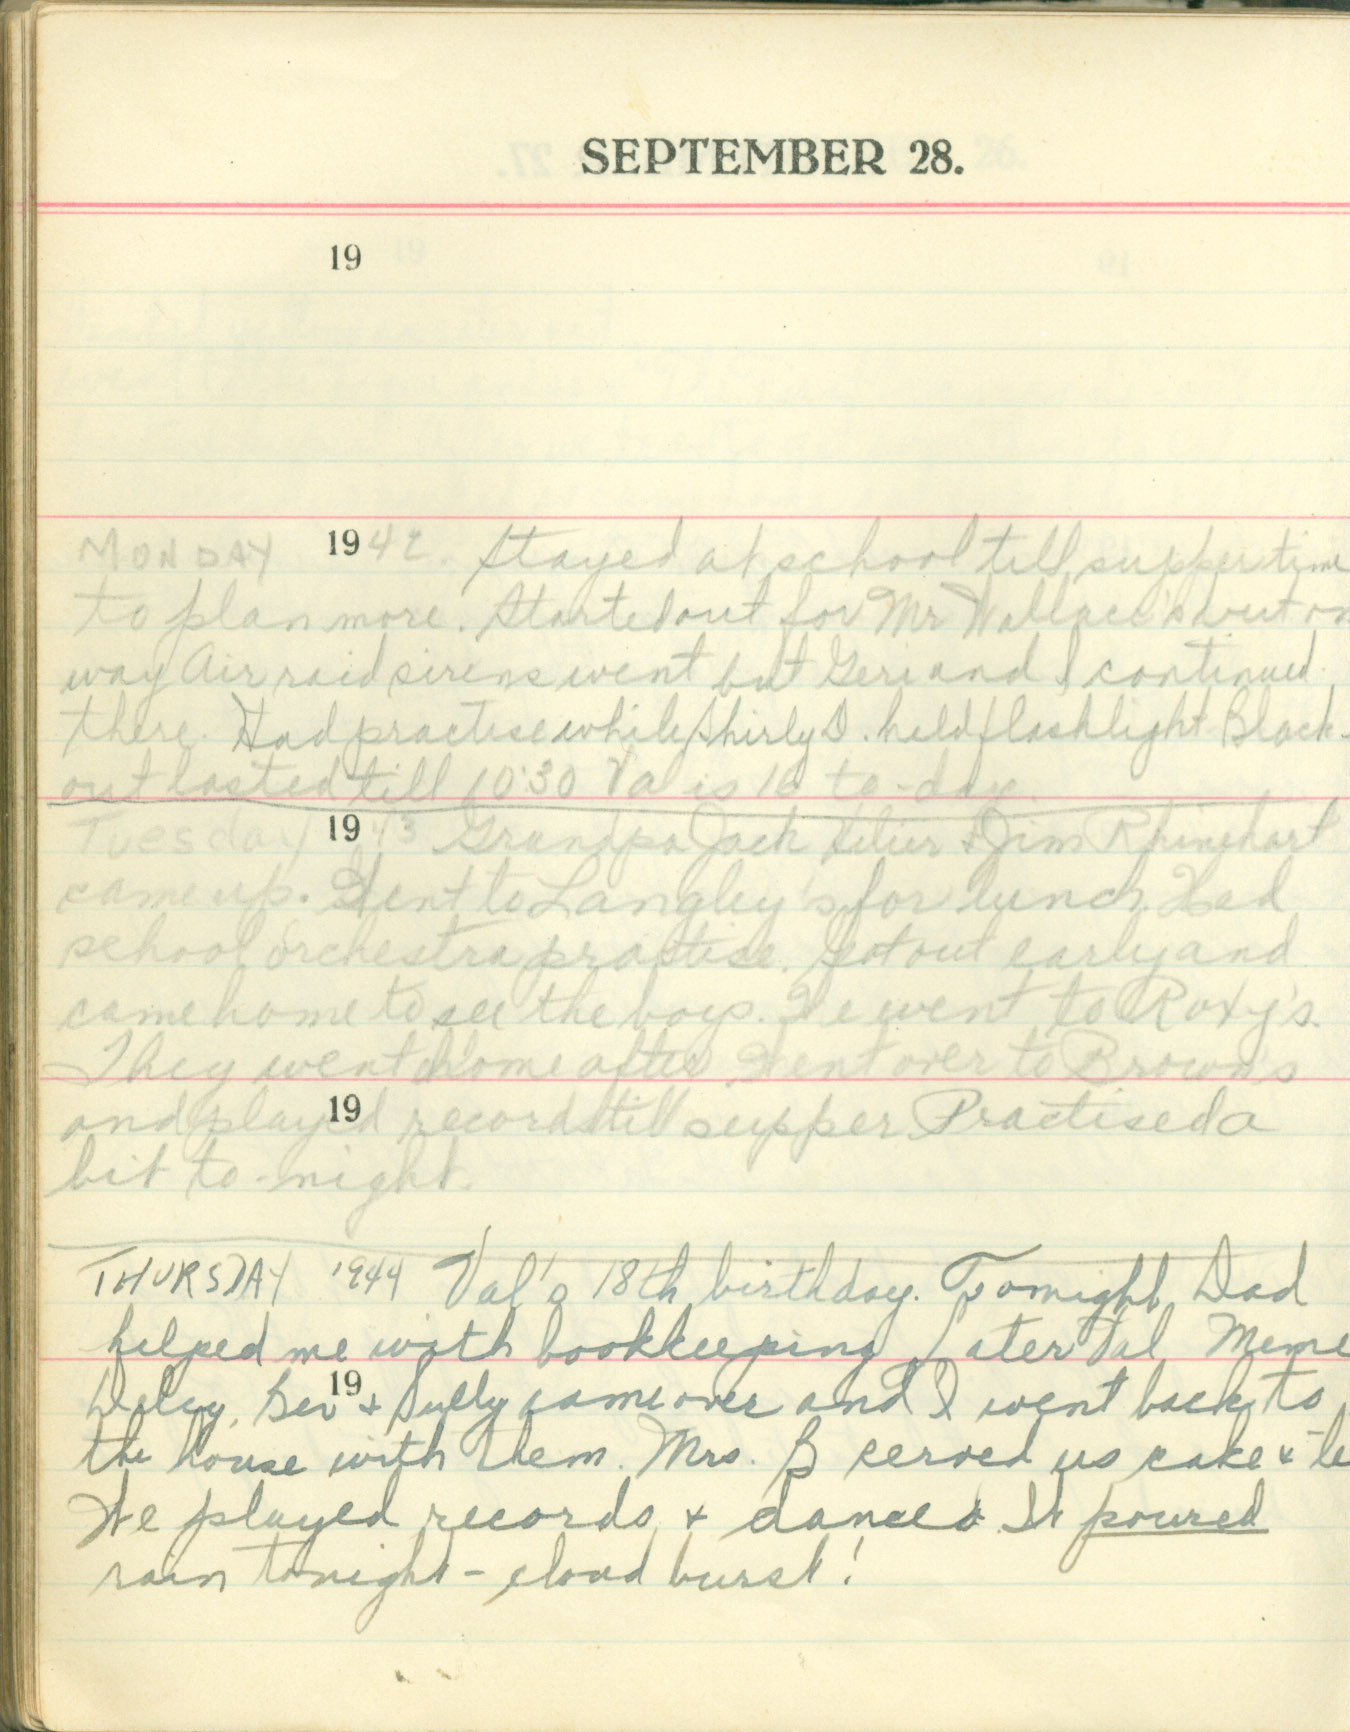 SEPTEMBER 28.
19
MONDAY 1942. Stayed at school till supper time
to plan more. Started out for Mr Wallace's but on
way Air raid sirens went but Geri and I continued
there. Had practise while Shirly D. held flashlight Black-
out lasted till 10:30 Val is 16 to-day.
Tuesday 1943 Grandpa Jack & Jim Rhinehart
came up. Went to Langley's for lunch. Had
school orchestra practise. Got out early and
came home to see the boys. We went to Roxy's.
They went home after. Went over to Brown's
19
and played records till supper. Practised a
bit to-night.
THURSDAY 1944 Val's 18th birthday. Tonight Dad
helped me with bookkeeping Later Val Meme
19
Bev & Sully came over and I went back to
the house with them. Mrs. B served us cake &
We played records & danced. It poured
rain tonight - cloud burst!